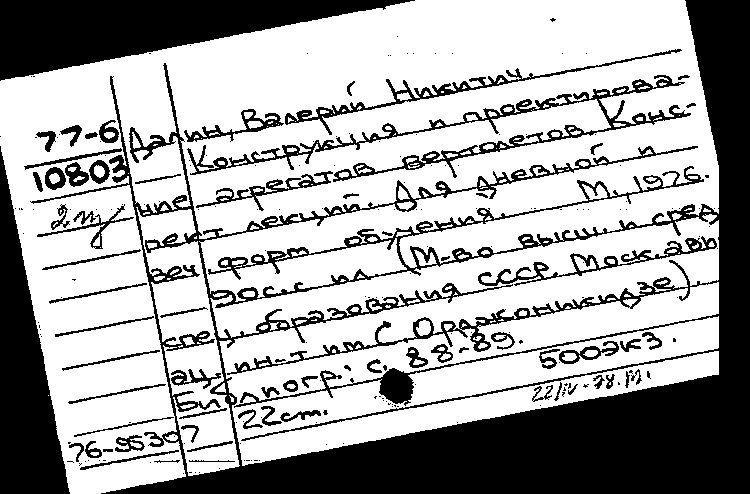 77-6
10803
Далин, Валерий Никитич.
Конструкция и проектирова-
ние агрегатов вертолетов. Конс-
пект лекций. Для дневной и
веч. форм обучения. М., 1976.
90с. с ил. (М-во высш. и сред.
спец. образования СССР. Моск. авы
ац. ин-т им. С. Орджоникидзе).
Библиогр.: с. 88-89.
22см. 500экз.
76-95307
22/IV-78. М.